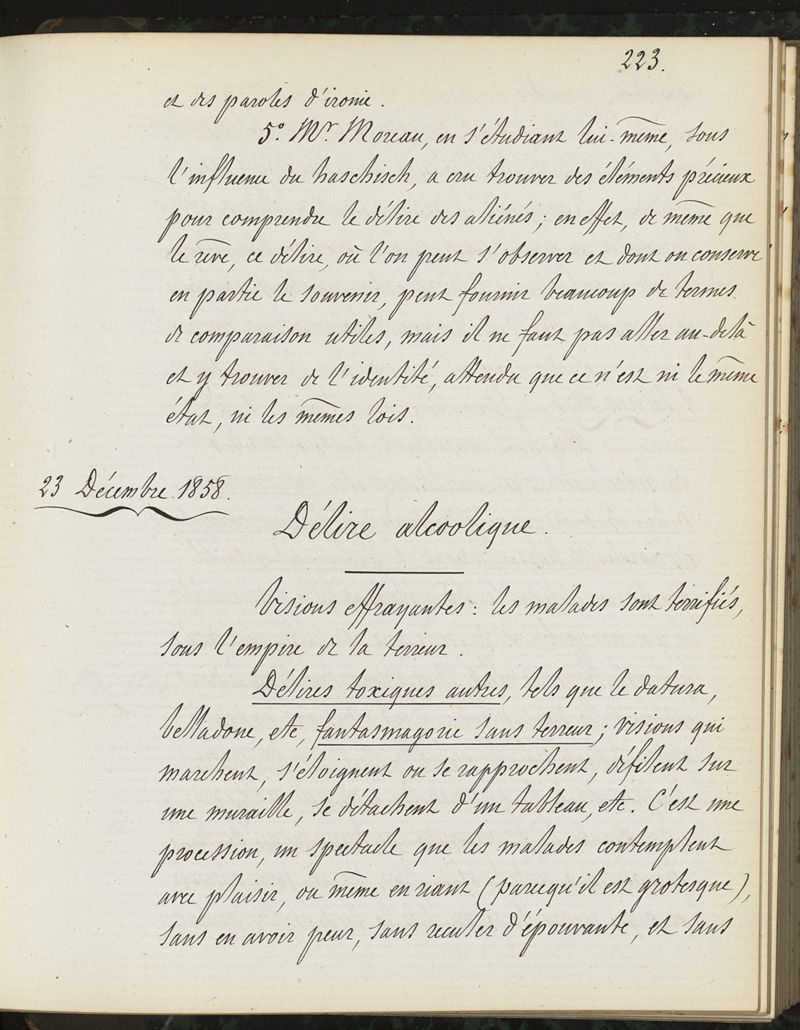 223.
et des paroles d'ironie.
5° Mr. Moreau, en s'étudiant lui-même, sous
l'influence du haschisch, a cru trouver des éléments précieux
pour comprendre le délire des aliénés ; en effet, de même que
le rêve, ce délire, où l'on peut s'observer et dont on conserve
en partie le souvenir, peut fournir beaucoup de termes
de comparaison utiles, mais il ne faut pas aller au-delà
et y trouver de l'identité, attendu que ce n'est ni le même
état, ni les mêmes lois.
23 Décembre 1858.
Délire alcoolique.
Visions effrayantes : les malades sont terrifiés,
sous l'empire de la terreur.
Délires toxiques autres, tels que le datura,
belladone, etc, fantasmagorie sans terreur ; visions qui
marchent, s'éloignent ou se rapprochent, défilent sur
une muraille, se détachent d'un tableau, etc. C'est une
procession, un spectacle que les malades contemplent
avec plaisir, ou même en riant (parcequ'il est grotesque),
sans en avoir peur, sans reculer d'épouvante, et sans